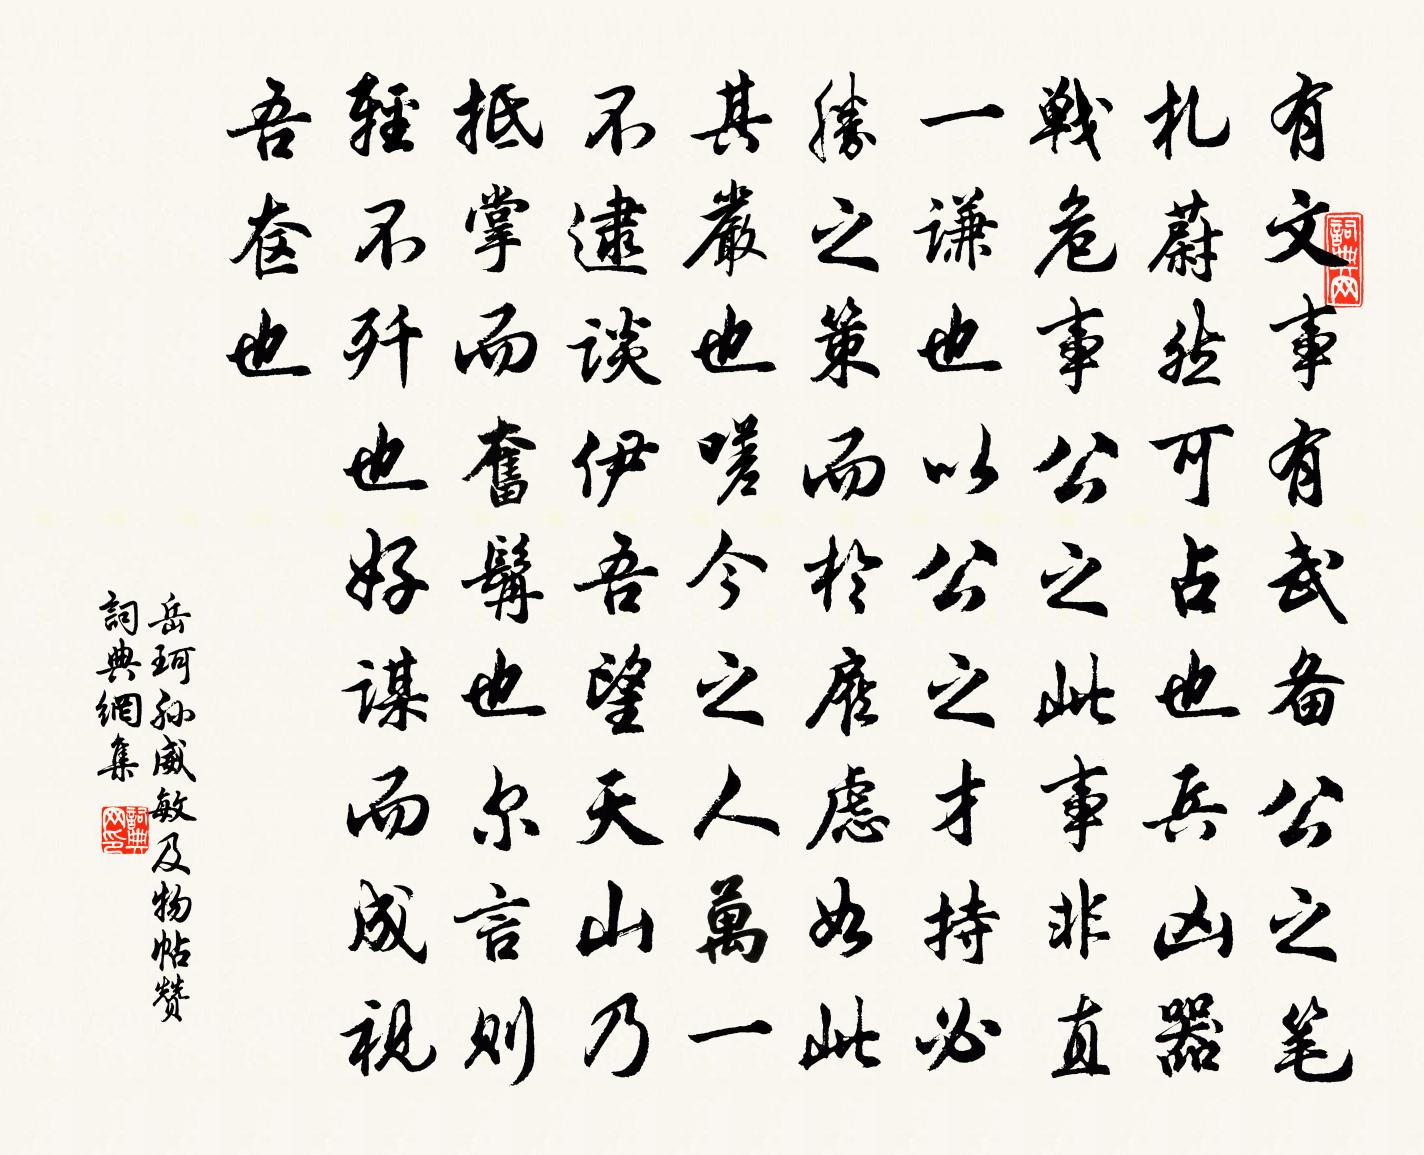 有文事有武备公之笔
札蔚然可占也兵凶器
戦危事公之此事非直
一谦也以公之才持必
勝之策而於廑慮如此
其嚴也嗟今之人萬一
不逮谈伊吾望天山乃
抵掌而奮髯也尔言则
輕不歼也好谋而成視
吾奁也
岳珂孙威敏及物帖赞
詞典網集
詞典网
詞典网印